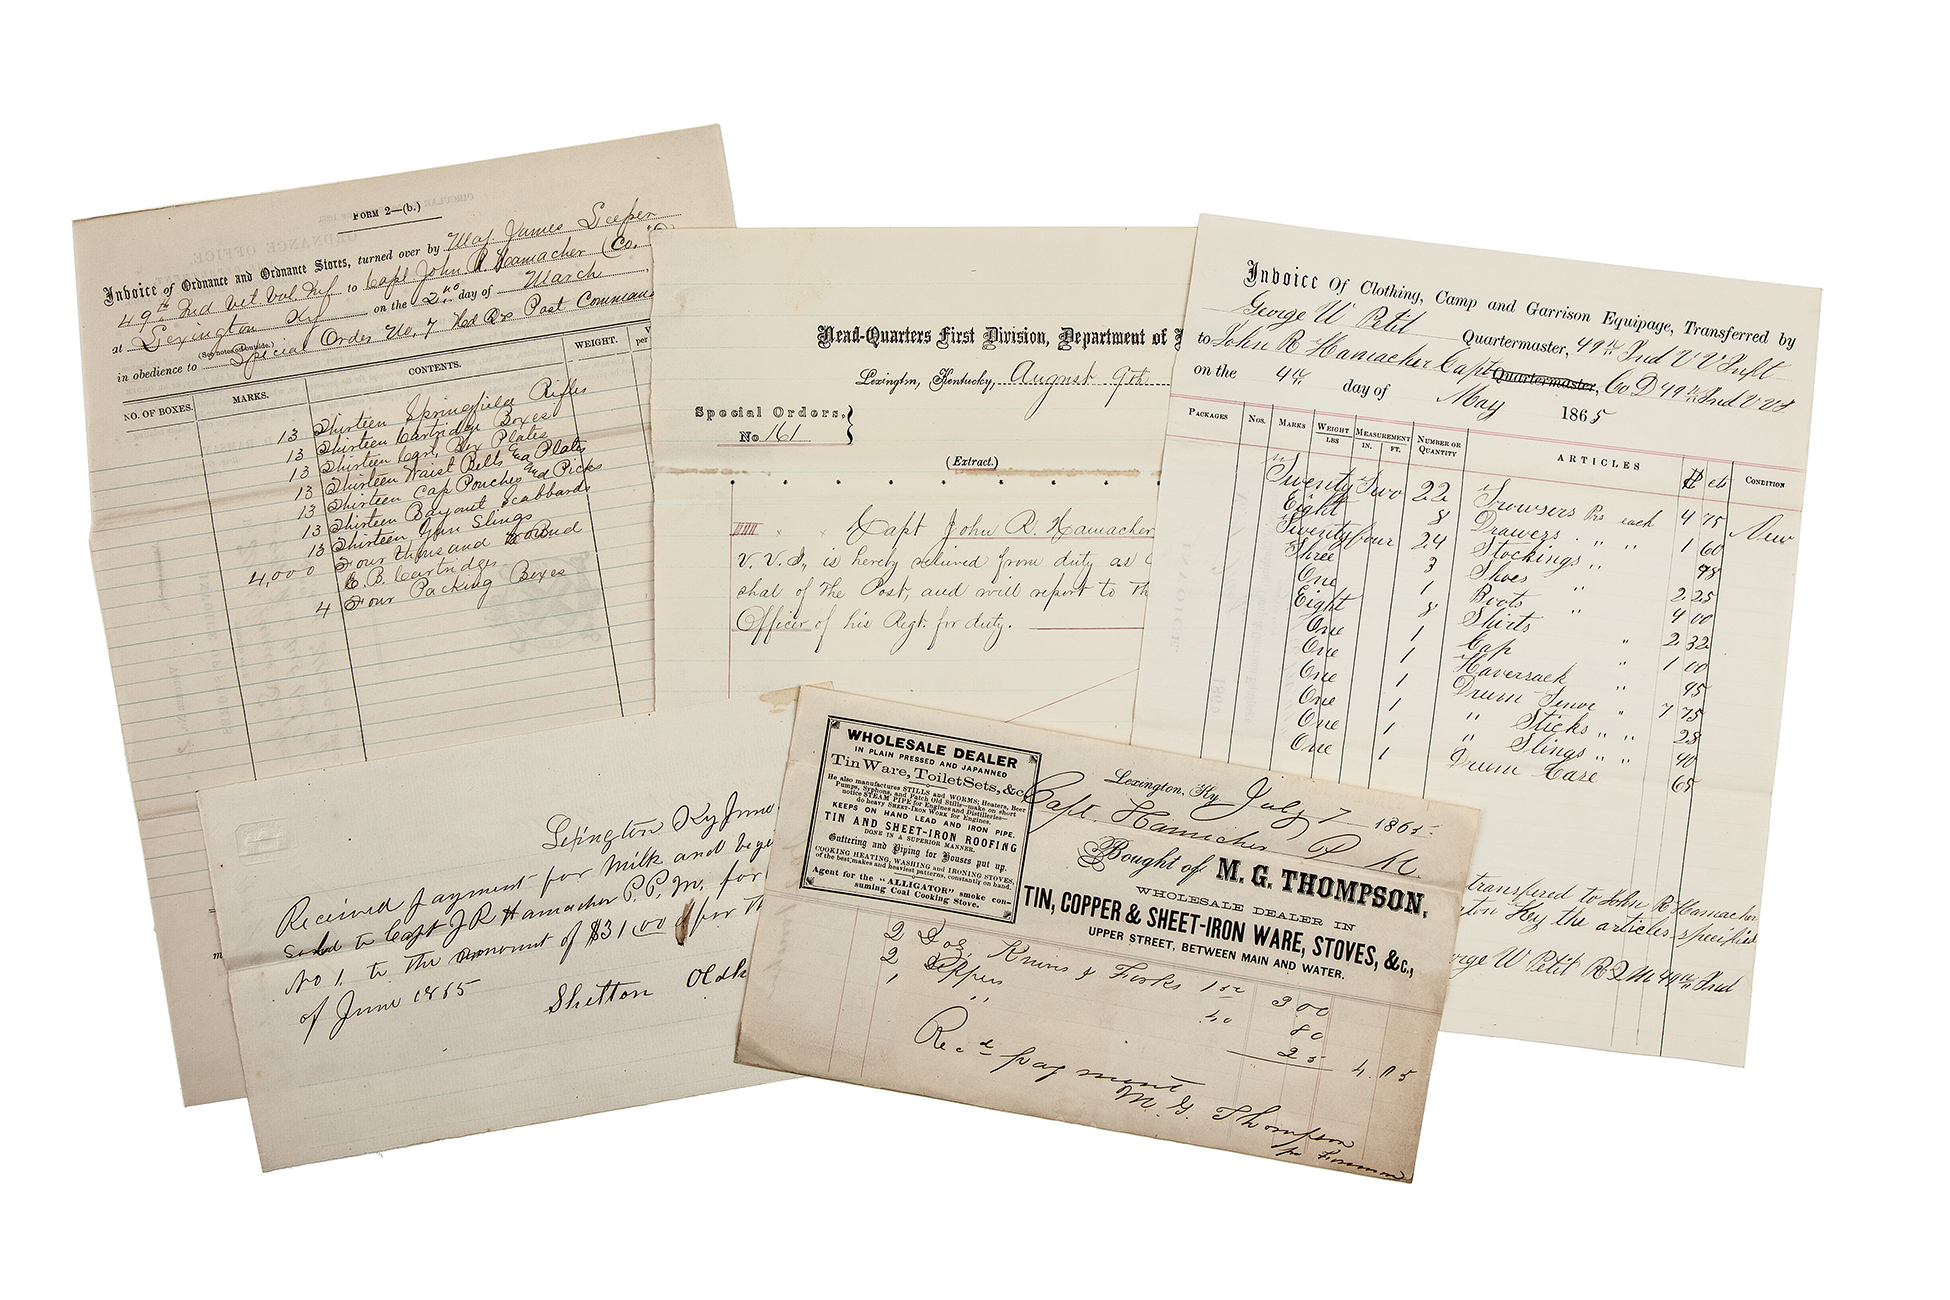 FORM 2—(b.)
Invoice of Ordnance and Ordnance Stores, turned over by Maj. James Leeper
49th Ind Vet Vol Inf to Capt John R. Hamacher (Co.
at Lexington Ky on the 2nd day of March
(See notes outside.)
in obedience to Special Order No. 7 Hed Qrs Post Command
NO. OF BOXES. MARKS. CONTENTS. WEIGHT.
13 Thirteen Springfield Rifles
13 Thirteen Cartridge Boxes
13 Thirteen Cart, Box Plates
13 Thirteen Waist Belts and Plates
13 Thirteen Cap Pouches and Picks
13 Thirteen Bayonet Scabbards
13 Thirteen Gun Slings
4,000 Four thousand Round
E. B. Cartridges
4 Four Packing Boxes
Head-Quarters First Division, Department of
Lexington, Kentucky, August 9th
Special Orders,
No 161
(Extract.)
Capt John R. Hamacher
V. V. I., is hereby relieved from duty as
shal of the Post, and will report to th
Officer of his Regt. for duty.
Invoice Of Clothing, Camp and Garrison Equipage, Transferred by
George W Petit Quartermaster, 49th Ind V V Inft
to John R Hamacher Capt Quartermaster, Co D 49th Ind V V I
on the 4th day of May 1865
PACKAGES NOS. MARKS WEIGHT LBS MEASUREMENT IN. FT. NUMBER OR QUANTITY ARTICLES $ cts CONDITION
Twenty Two 22 Trowsers Prs each 4 75 New
Eight 8 Drawers " " 1 60
Twenty four 24 Stockings " 48
Three 3 Shoes " 2.25
One 1 Boots " 4 00
Eight 8 Shirts " 2 32
One 1 Cap " 1 00
One 1 Haversack " 45
One 1 Drum " 7 75
One 1 " Sticks " " 28
One 1 " Slings " " 40
One 1 Drum Case 65
transfered to John R Hamacher
the articles specified
George W Petit R Q M 49th Ind
Lexington Ky June
Received payment for Milk and
sold to Capt J R Hamacher P. P. M. for
No 1, to the amount of $31.00 for th
of June 1865
Shelton
WHOLESALE DEALER
IN PLAIN PRESSED AND JAPANNED
Tin Ware, Toilet Sets, &c.
He also manufactures STILLS and WORMS; Heaters, Beer
Pumps, Syphons, and Patch Old Stills—make on short
notice STEAM PIPE for Engines and Distilleries—
do heavy SHEET-IRON WORK for Engines.
KEEPS ON HAND LEAD AND IRON PIPE.
TIN AND SHEET-IRON ROOFING
DONE IN A SUPERIOR MANNER.
Guttering and Piping for Houses put up.
COOKING HEATING, WASHING and IRONING STOVES,
of the best makes and heaviest patterns, constantly on hand.
Agent for the "ALLIGATOR" smoke con-
suming Coal Cooking Stove.
Lexington, Ky July 7 1865
Capt. Hamicher P. M.
Bought of M. G. THOMPSON,
WHOLESALE DEALER IN
TIN, COPPER & SHEET-IRON WARE, STOVES, &C.,
UPPER STREET, BETWEEN MAIN AND WATER.
2 Doz Knives & Forks 1 50 3.00
2 Dippers 40 80
1 " 25 4.05
Rec.d payment
M. G. Thompson